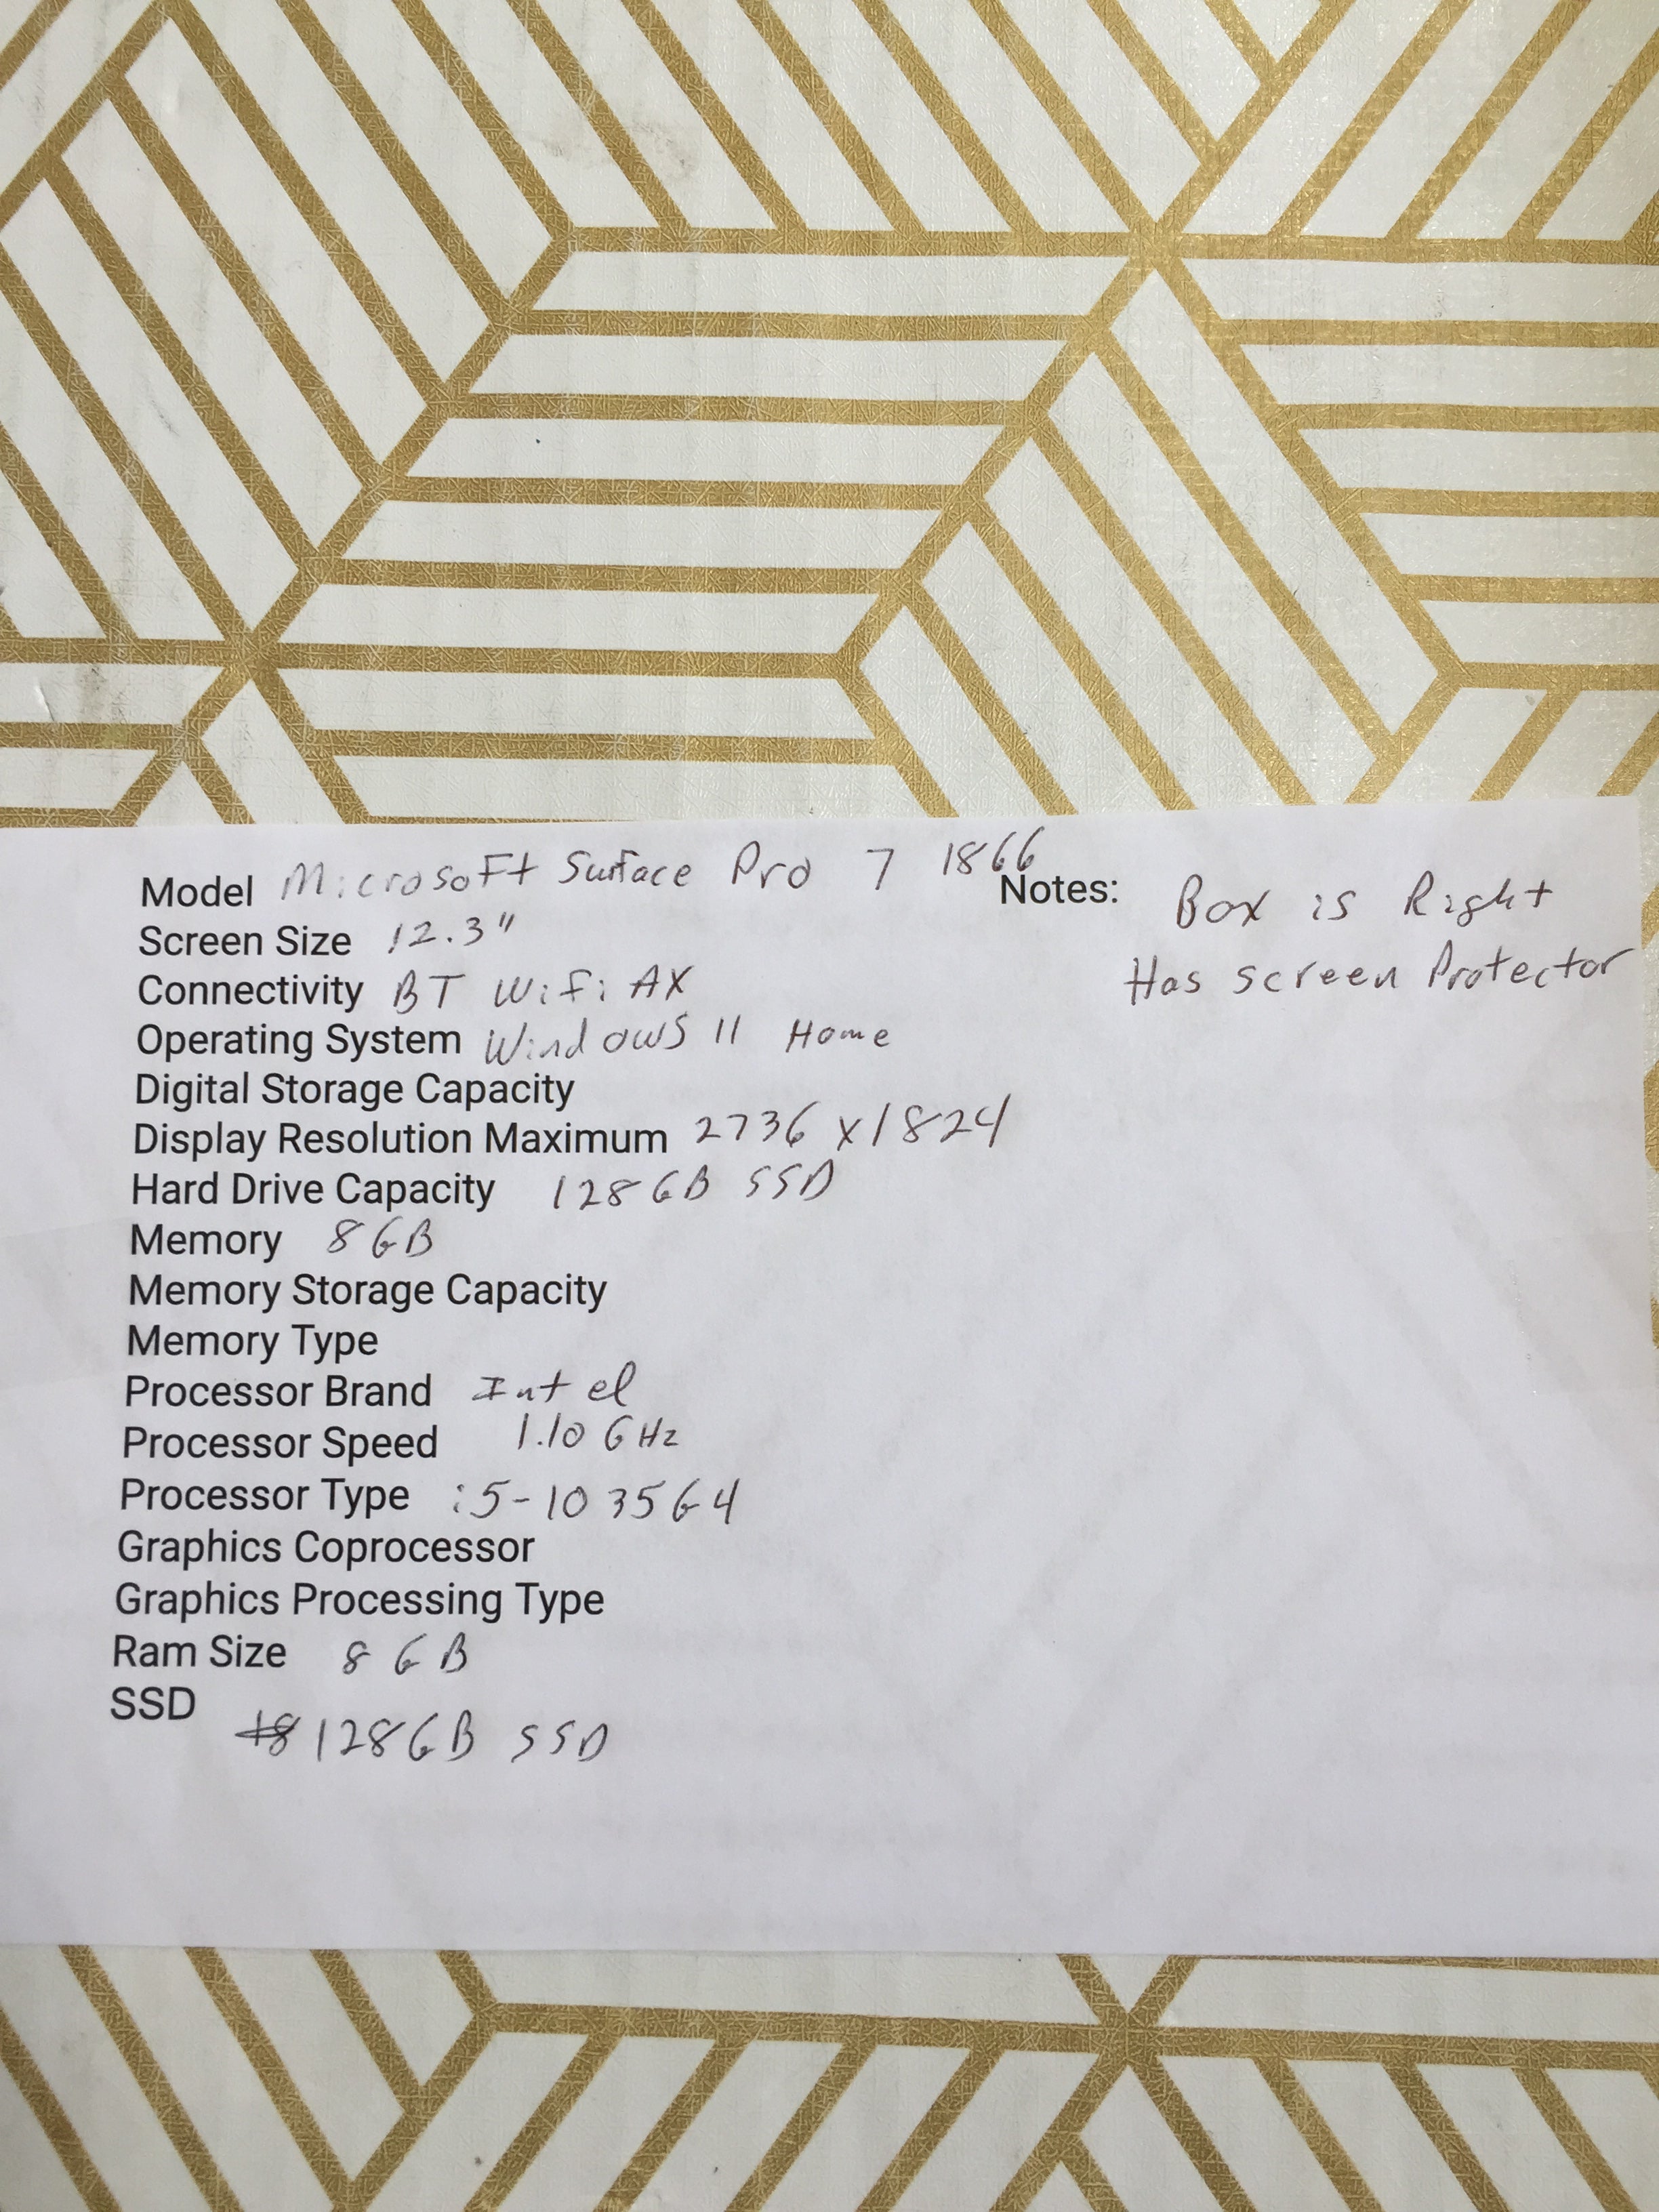 Model Microsoft Surface Pro 7 1866
Notes: Box is Right
Has screen Protector
Screen Size 12.3"
Connectivity BT WiFi AX
Operating System Windows 11 Home
Digital Storage Capacity
Display Resolution Maximum 2736 x 1824
Hard Drive Capacity 128GB SSD
Memory 8GB
Memory Storage Capacity
Memory Type
Processor Brand Intel
Processor Speed 1.10 GHz
Processor Type i5-1035G4
Graphics Coprocessor
Graphics Processing Type
Ram Size 8GB
SSD 128GB SSD